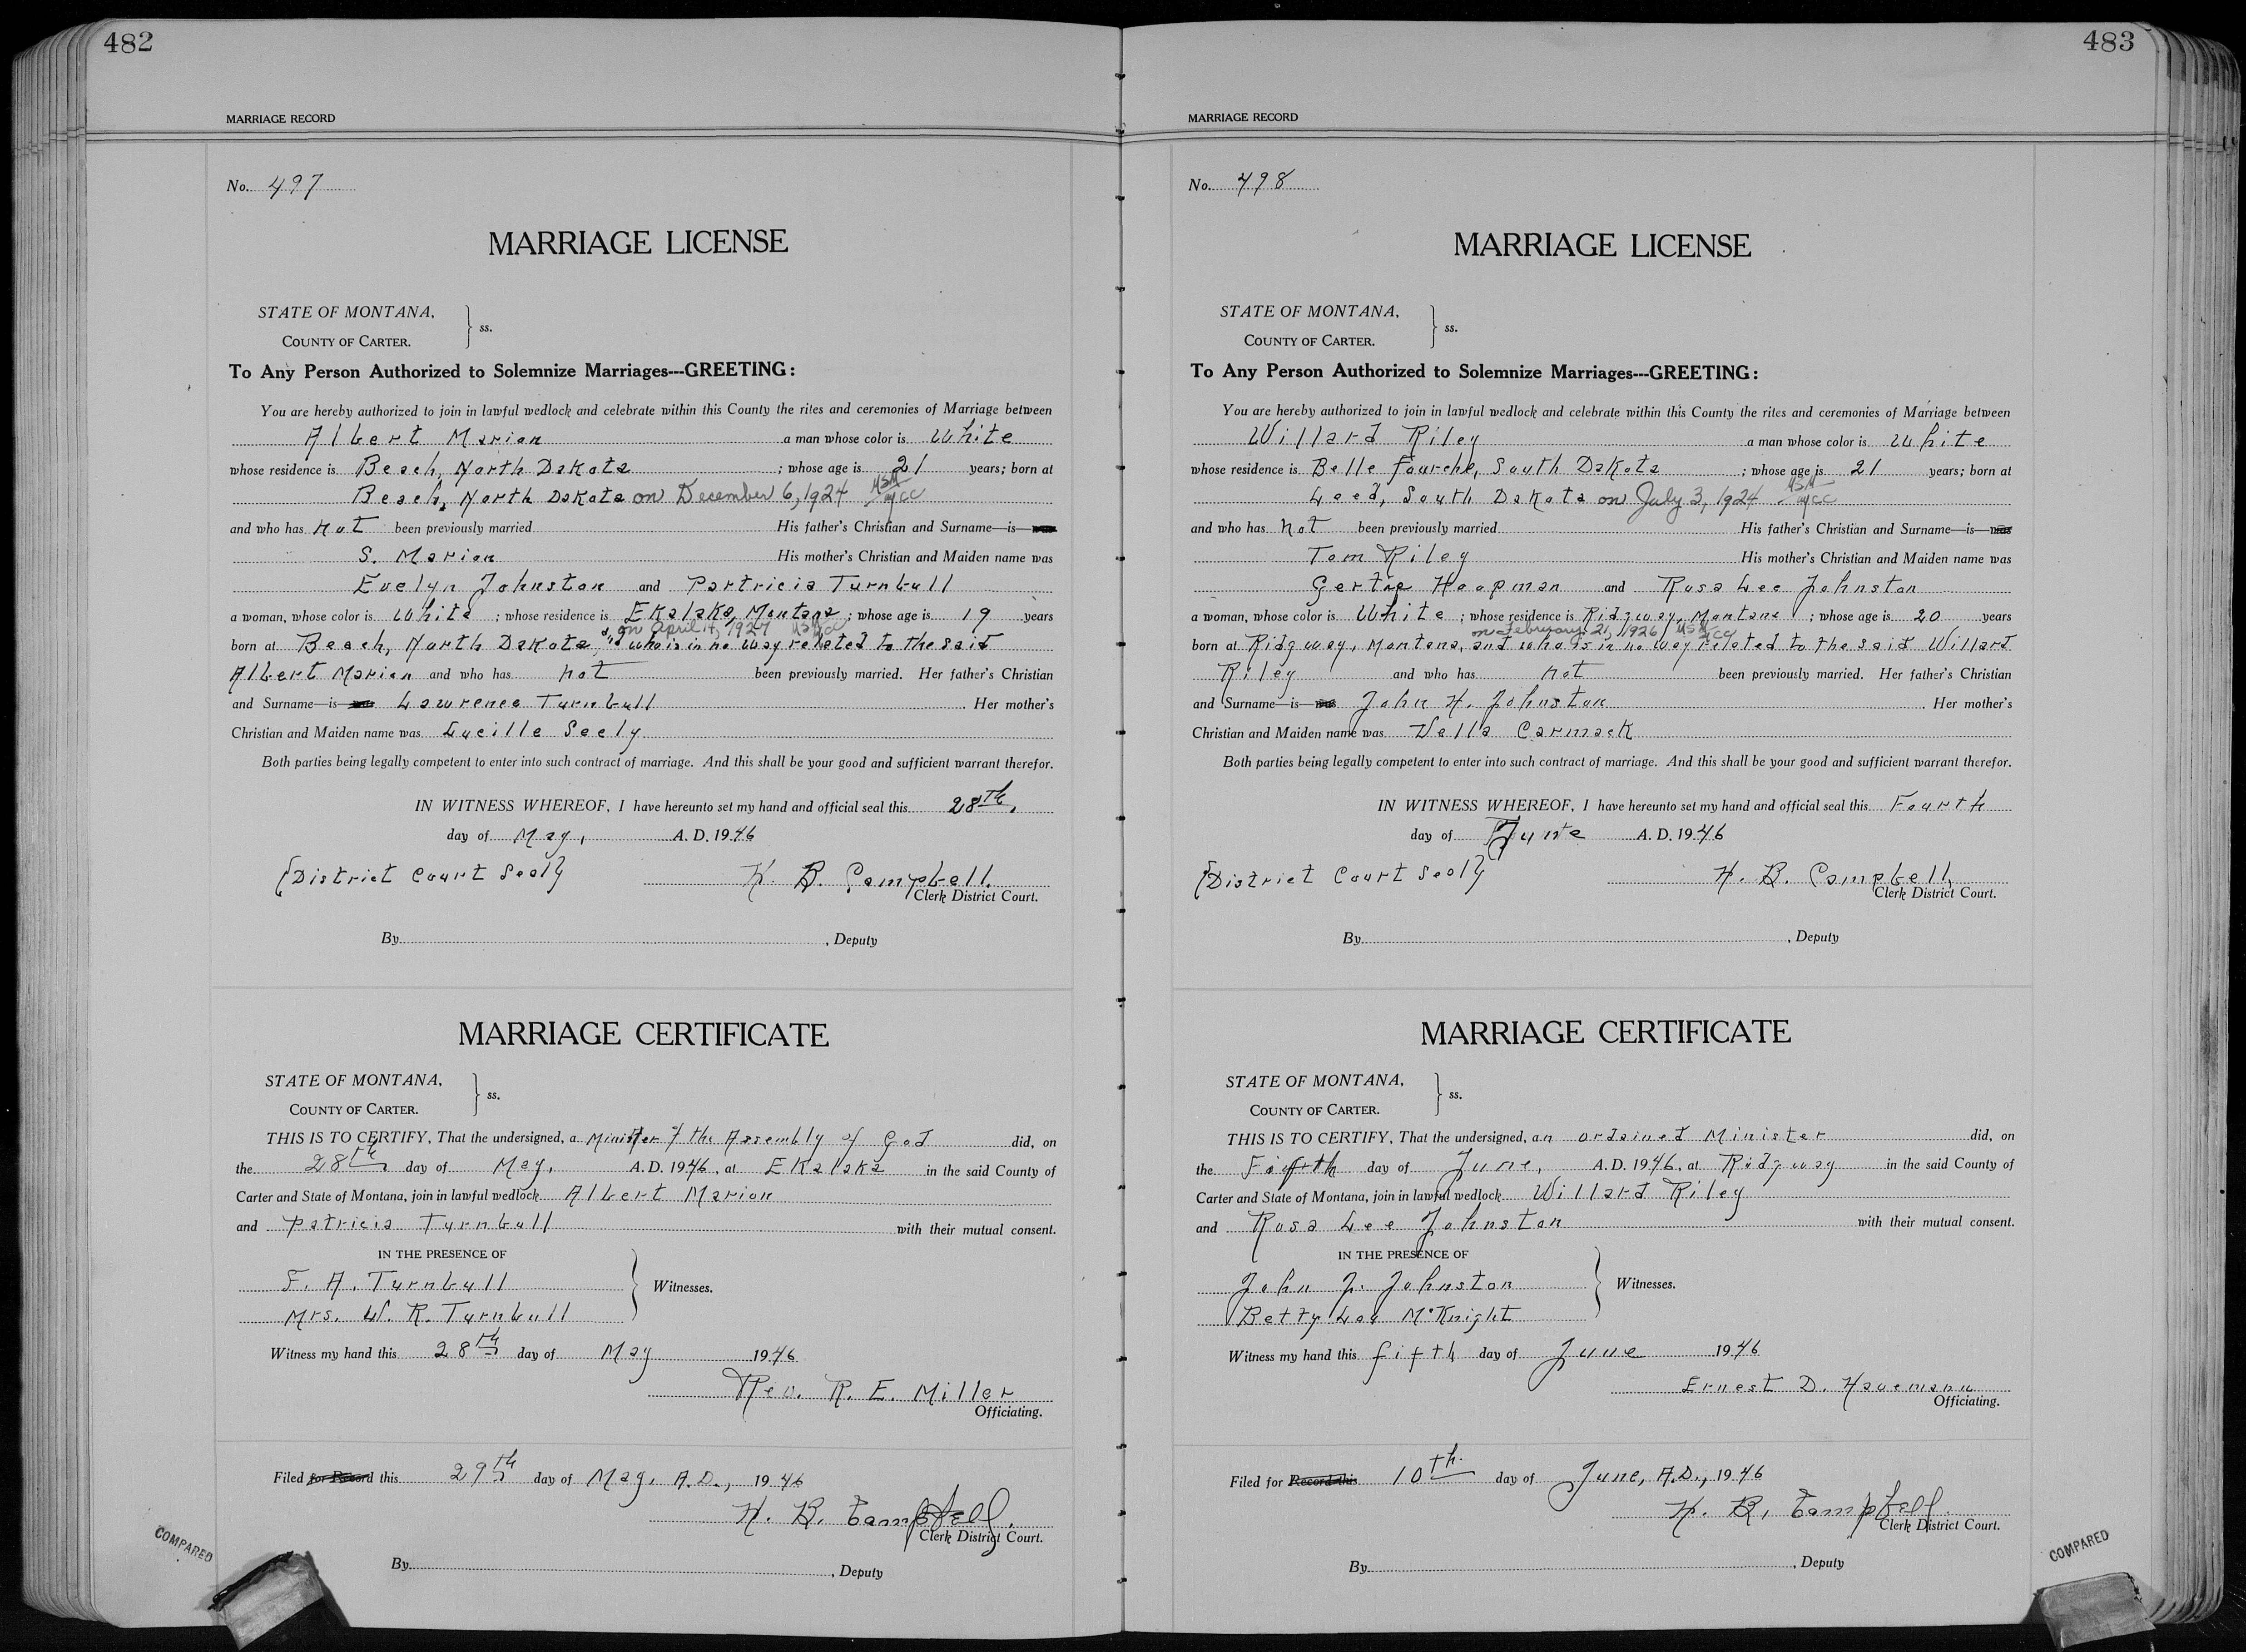 482
MARRIAGE RECORD
No. 497
MARRIAGE LICENSE
STATE OF MONTANA,
COUNTY OF CARTER. } ss.
To Any Person Authorized to Solemnize Marriages---GREETING:
You are hereby authorized to join in lawful wedlock and celebrate within this County the rites and ceremonies of Marriage between
Albert Marion a man whose color is White
whose residence is Beach, North Dakota ; whose age is 21 years; born at
Beach, North Dakota on December 6, 1924 MSM
and who has not been previously married His father's Christian and Surname—is—was
S. Marion His mother's Christian and Maiden name was
Evelyn Johnston and Partricia Turnbull
a woman, whose color is White ; whose residence is Ekalaka, Montana ; whose age is 19 years
on April 14, 1927
born at Beach, North Dakota, and who is in no way related to the said
Albert Marion and who has not been previously married. Her father's Christian
and Surname—is—was Lawrence Turnbull . Her mother's
Christian and Maiden name was Lucille Seely
Both parties being legally competent to enter into such contract of marriage. And this shall be your good and sufficient warrant therefor.
IN WITNESS WHEREOF, I have hereunto set my hand and official seal this 28th,
day of May, A. D. 1946
{District Court Seal} H. B. Campbell.
Clerk District Court.
By , Deputy
MARRIAGE CERTIFICATE
STATE OF MONTANA,
COUNTY OF CARTER. } ss.
THIS IS TO CERTIFY, That the undersigned, a Minister of the Assembly of God did, on
the 28th day of May, A. D. 1946, at Ekalaka in the said County of
Carter and State of Montana, join in lawful wedlock Albert Marion
and Patricia Turnbull with their mutual consent.
IN THE PRESENCE OF
F. A. Turnbull
Mrs. W. R. Turnbull } Witnesses.
Witness my hand this 28th day of May 1946
Rev. R. E. Miller
Officiating.
Filed for Record this 29th day of May, A.D., 1946
H. B. Campbell.
Clerk District Court.
By , Deputy
COMPARED
483
MARRIAGE RECORD
No. 498
MARRIAGE LICENSE
STATE OF MONTANA,
COUNTY OF CARTER. } ss.
To Any Person Authorized to Solemnize Marriages---GREETING:
You are hereby authorized to join in lawful wedlock and celebrate within this County the rites and ceremonies of Marriage between
Willard Riley a man whose color is White
whose residence is Belle Fourche, South Dakota ; whose age is 21 years; born at
Leed, South Dakota on July 3, 1924 MSM
and who has not been previously married His father's Christian and Surname—is—was
Tom Riley His mother's Christian and Maiden name was
Gertie Hoopman and Rosa Lee Johnston
a woman, whose color is White ; whose residence is Ridgway, Montana ; whose age is 20 years
on February 21, 1926 MSM
born at Ridgway, Montana, and who is in no way related to the said Willard
Riley and who has not been previously married. Her father's Christian
and Surname—is—was John H. Johnston . Her mother's
Christian and Maiden name was Vella Carmack
Both parties being legally competent to enter into such contract of marriage. And this shall be your good and sufficient warrant therefor.
IN WITNESS WHEREOF, I have hereunto set my hand and official seal this Fourth
day of June A. D. 1946
{District Court Seal} H. B. Campbell,
Clerk District Court.
By , Deputy
MARRIAGE CERTIFICATE
STATE OF MONTANA,
COUNTY OF CARTER. } ss.
THIS IS TO CERTIFY, That the undersigned, an ordained Minister did, on
the Fifth day of June, A. D. 1946, at Ridgway in the said County of
Carter and State of Montana, join in lawful wedlock Willard Riley
and Rosa Lee Johnston with their mutual consent.
IN THE PRESENCE OF
John J. Johnston
Betty Lou McKnight } Witnesses.
Witness my hand this fifth day of June 1946
Ernest D. Havemann
Officiating.
Filed for Record this 10th. day of June, A.D., 1946
H. B. Campbell.
Clerk District Court.
By , Deputy
COMPARED